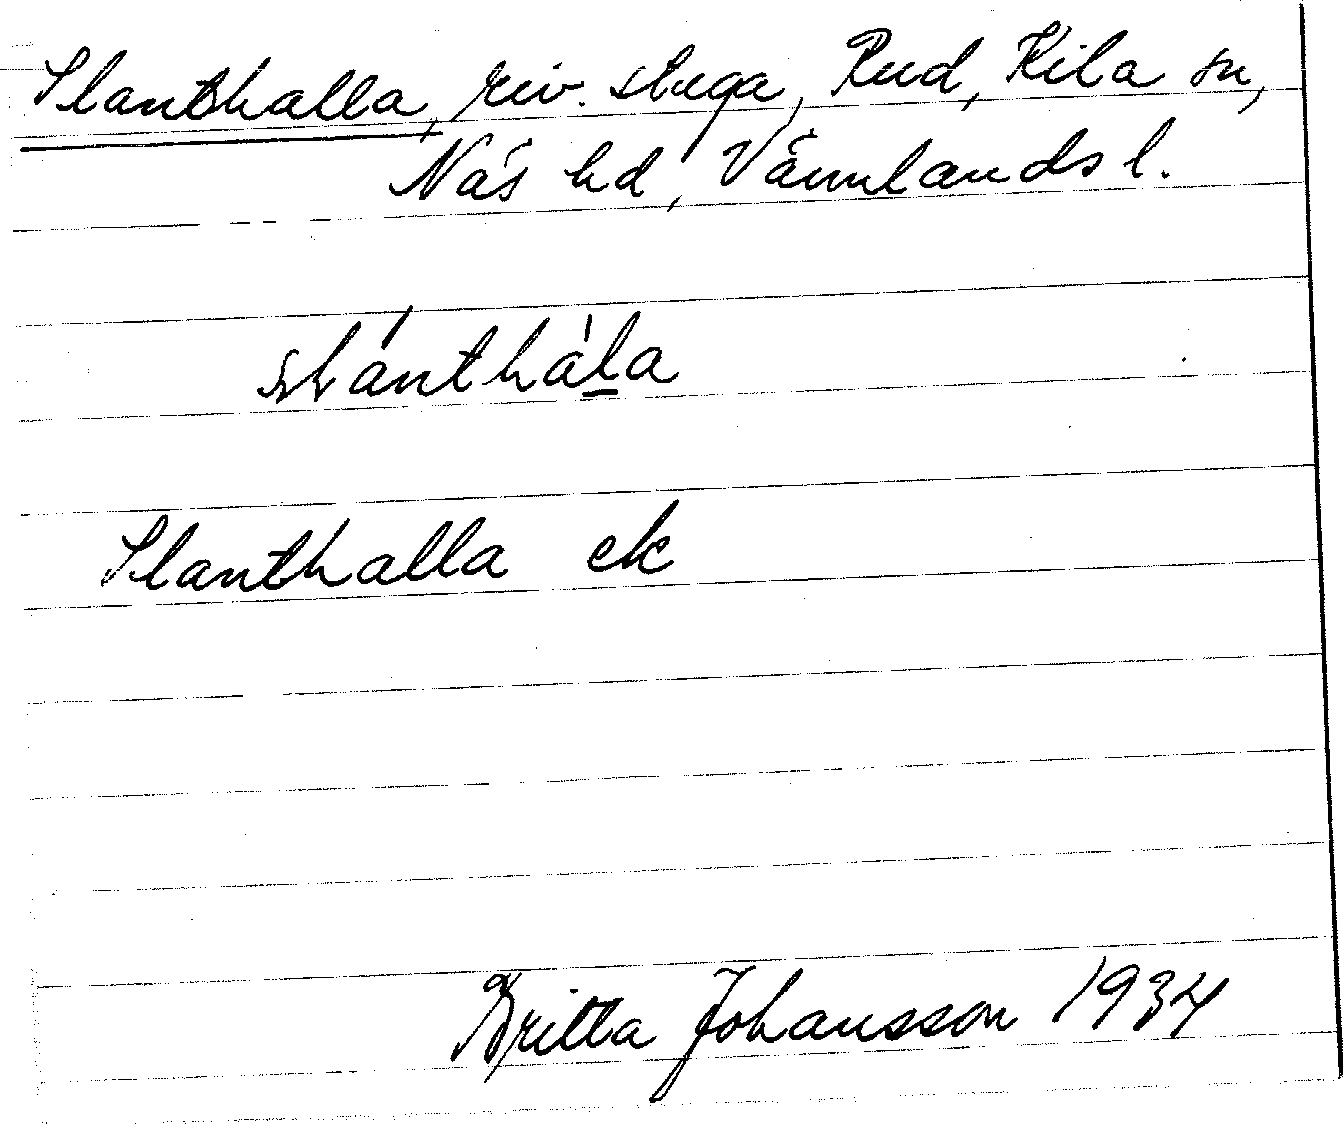 Slanthalla, riv. stuga, Rud, Kila sn,
Näs hd, Värmlands l.
slánthàla
Slanthalla ek
Britta Johansson 1934